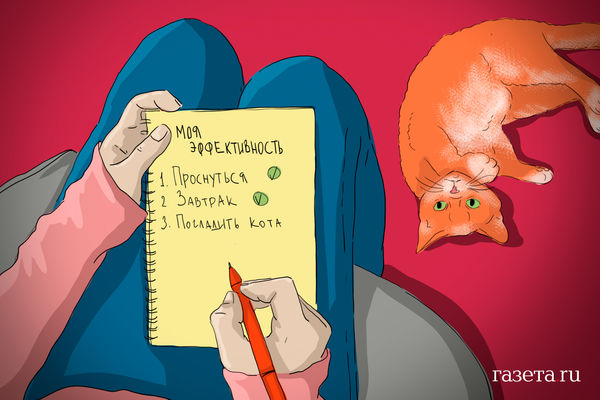 МОЯ
ЭФФЕКТИВНОСТЬ
1. ПРОСНУТЬСЯ
2 ЗАВТРАК
3. ПОГЛАДИТЬ КОТА
газета ru